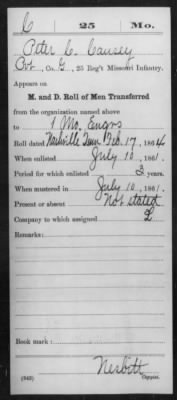 C 25 Mo.
Peter C. Causey
Pvt., Co. G, 25 Reg't Missouri Infantry.
Appears on
M. and D. Roll of Men Transferred
from the organization named above
to 1 Mo. Engrs
Roll dated Nashville Tenn Feb. 17, 1864
When enlisted July 10, 1861.
Period for which enlisted 3 years.
When mustered in July 10, 1861.
Present or absent Not stated
Company to which assigned
Remarks:
Book mark:
Nesbitt
(343) Copyist.